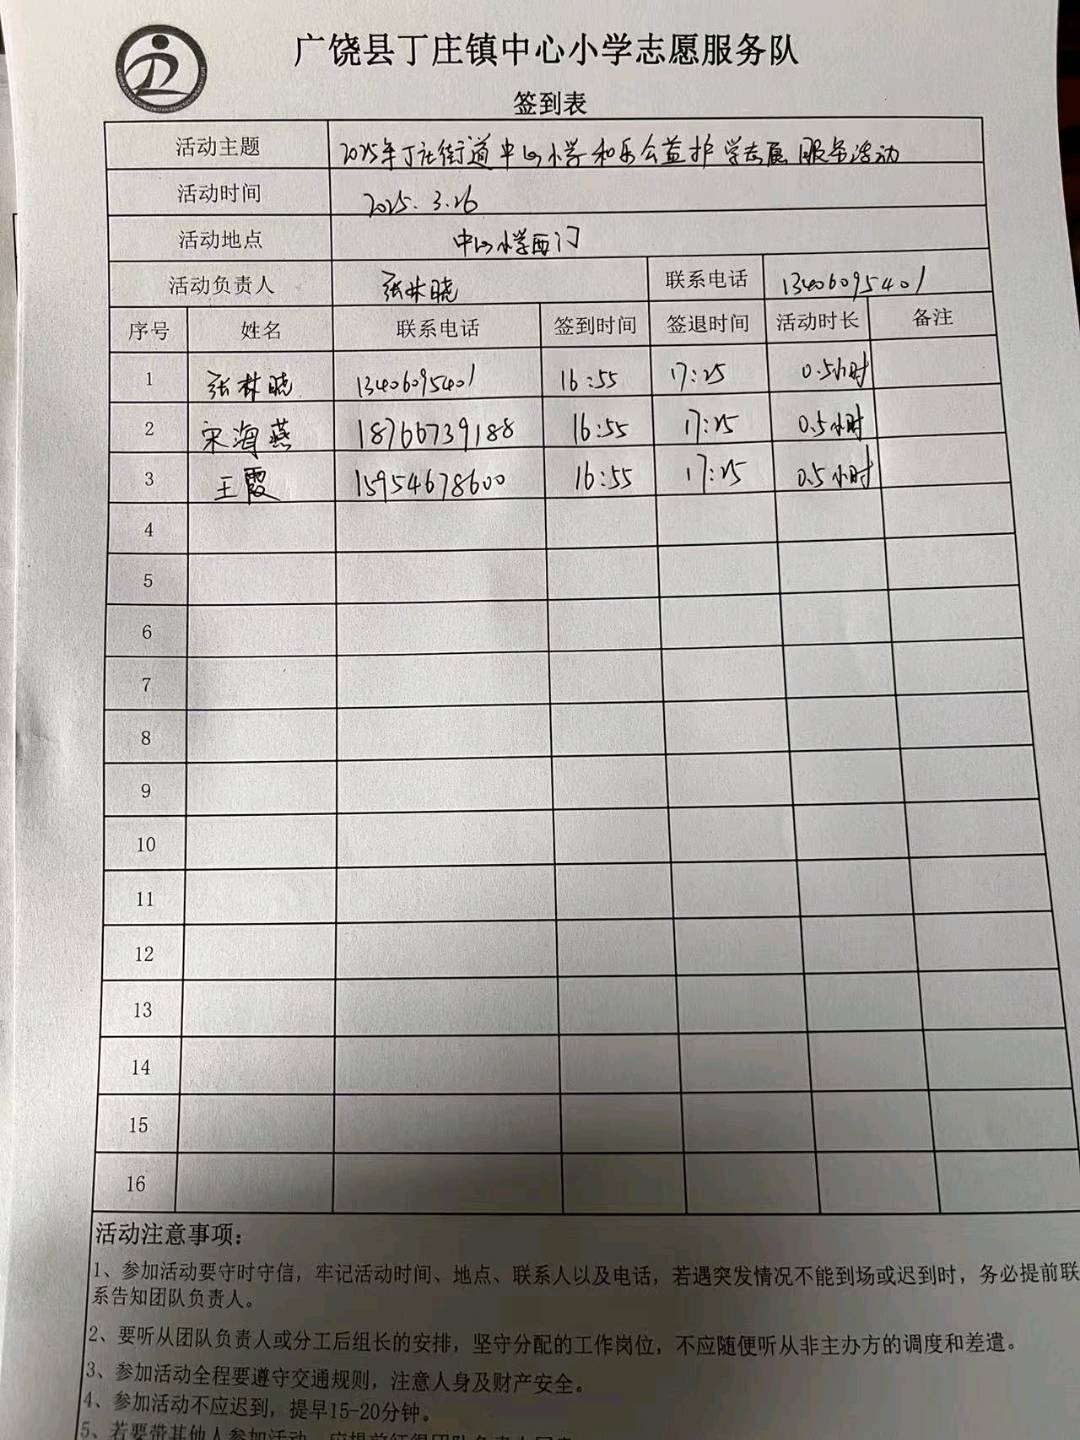 广饶县丁庄镇中心小学志愿服务队
签到表
活动主题 2025年丁庄街道中心小学和乐公益护学志愿服务活动
活动时间 2025.3.26
活动地点 中心小学西门
活动负责人 张林晓 联系电话 13406095401
序号 姓名 联系电话 签到时间 签退时间 活动时长 备注
1 张林晓 13406095401 16:55 17:25 0.5小时
2 宋海燕 18766739188 16:55 17:25 0.5小时
3 王霞 15954678600 16:55 17:25 0.5小时
4
5
6
7
8
9
10
11
12
13
14
15
16
活动注意事项:
1、参加活动要守时守信，牢记活动时间、地点、联系人以及电话，若遇突发情况不能到场或迟到时，务必提前联
系告知团队负责人。
2、要听从团队负责人或分工后组长的安排，坚守分配的工作岗位，不应随便听从非主办方的调度和差遣。
3、参加活动全程要遵守交通规则，注意人身及财产安全。
4、参加活动不应迟到，提早15-20分钟。
5、若要带其他人参加活动，应提前征得团队负责人同意